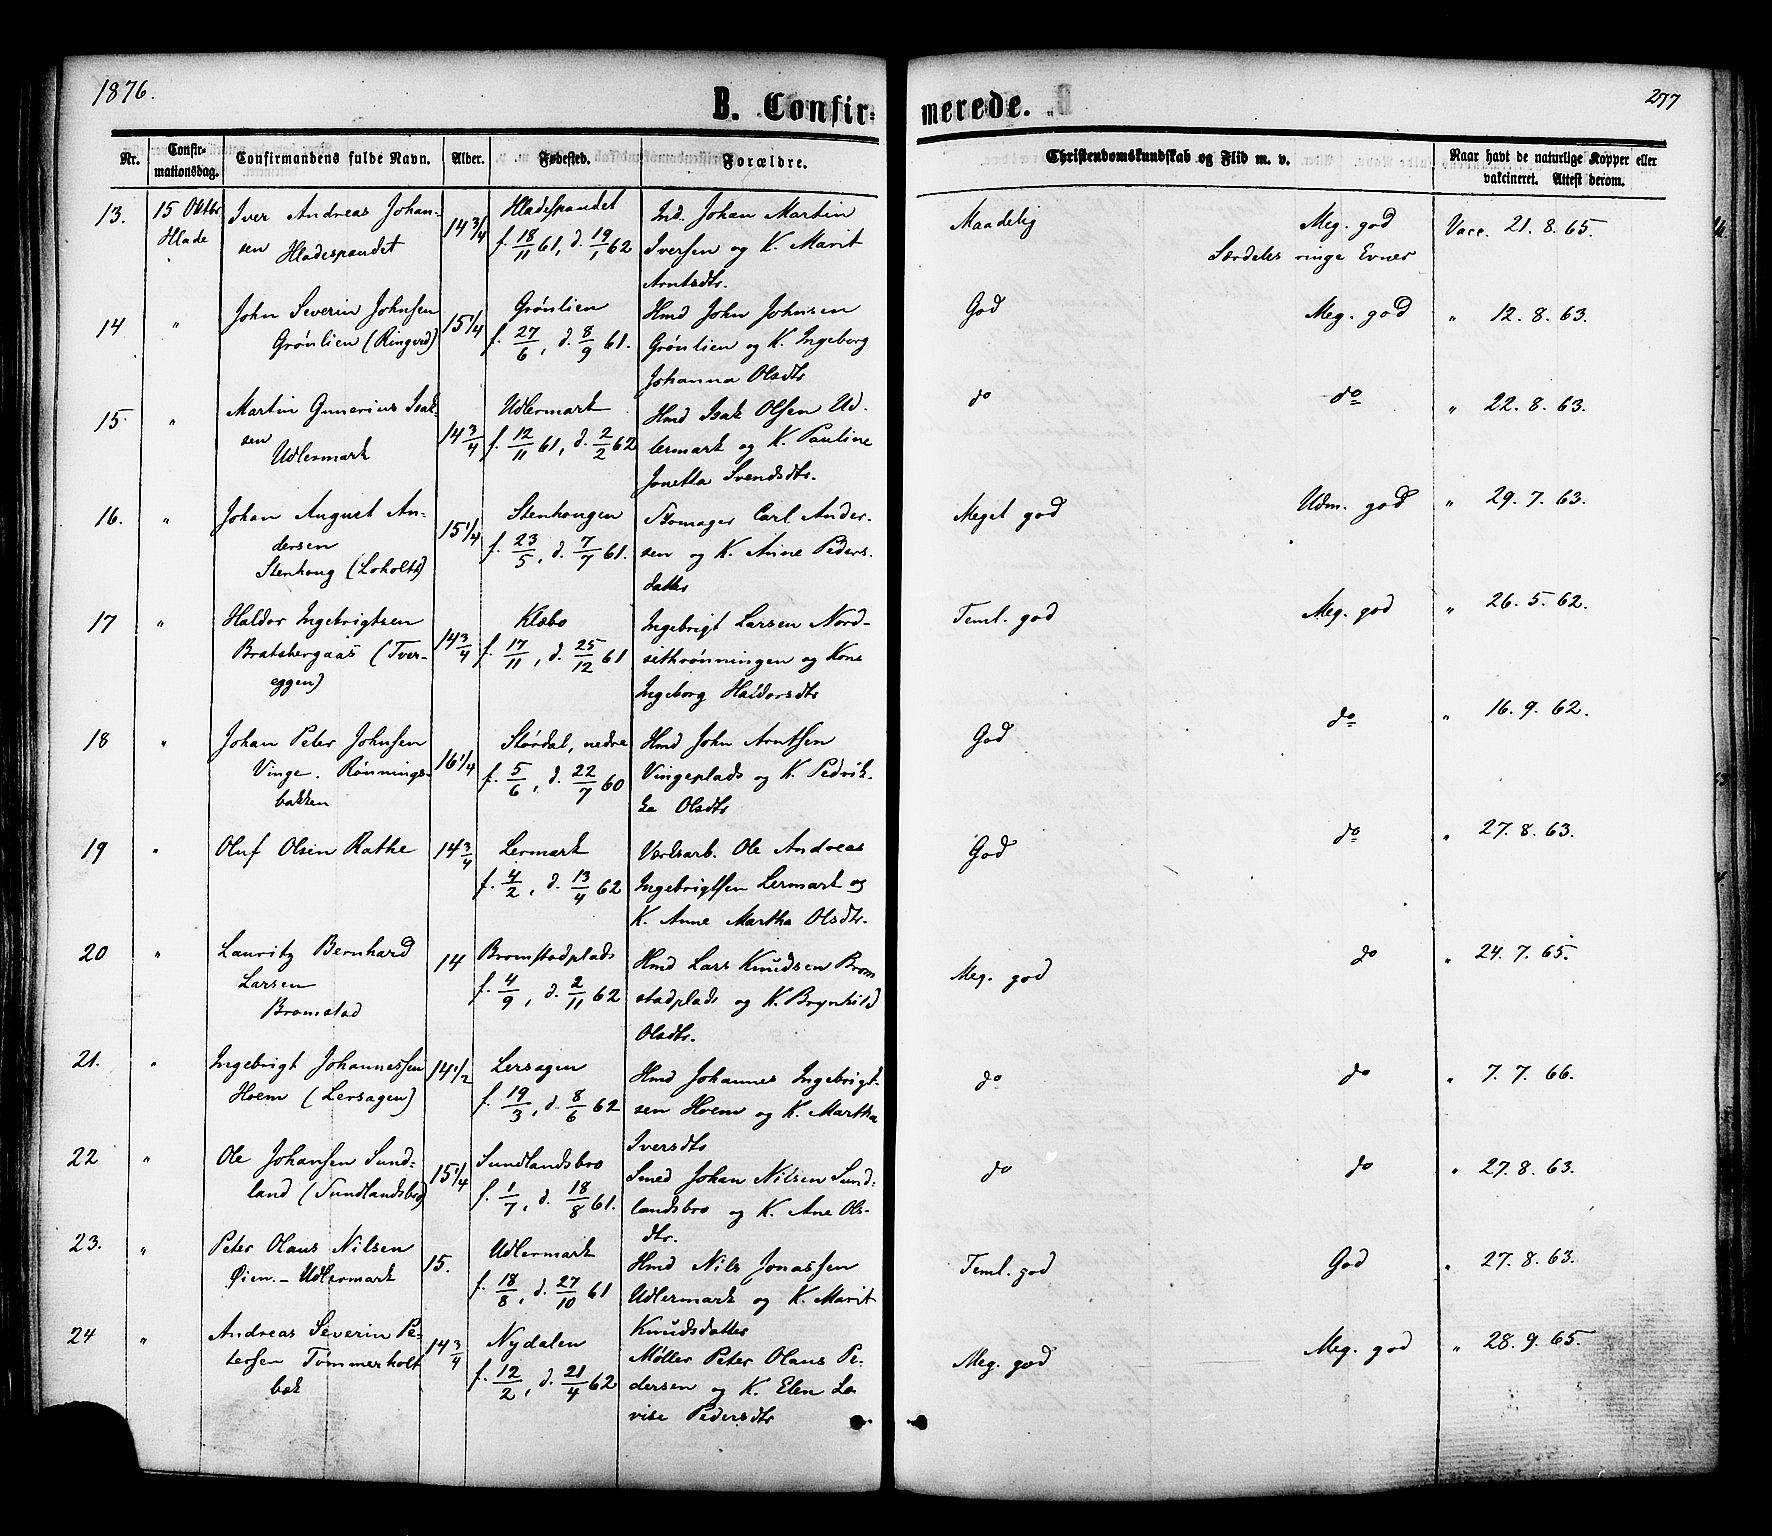 1876.
B. Confir-
merede.
277
Nr.
Confir-
mationsdag.
Confirmandens fulde Navn.
Alder.
Fødested.
Forældre.
Christendomskundskab og Flid m. v.
Naar havt de naturlige Kopper eller
vakcineret. Attest derom.
13. 15 Oktbr Iver Andreas Johan- 14 3/4 Hladespandet Ind. Johan Martin Maadelig Meg. god Vacc. 21. 8. 65.
Hlade sen Hladespandet f. 18/11 61, d. 19/1 62 Iversen og K. Marit Særdeles ringe Evner
Arntsdtr.
14 " John Severin Johnsen 15 1/4 Grønlien Hmd John Johnsen God Meg. god " 12. 8. 63.
Grønlien (Ringved) f. 27/6, d. 8/9 61. Grønlien og K. Ingeborg
Johanna Olsdtr
15. " Martin Gunerius Isak- 14 3/4 Udlermark Hmd Isak Olsen Ud- do do " 22. 8. 63.
sen f. 12/11 61, d. 2/2 62 lermark og K. Pauline
Udlermark Jonetta Svendsdtr.
16. " Johan August An- 15 1/4 Stenhougen Skomager Carl Ander- Meget god Udm. god " 29. 7. 63.
dersen f. 23/5, d. 7/7 61. sen og K. Anne Peders-
Stenhoug (Loholt) datter
17 " Haldor Ingebrigtsen 14 3/4 Klæbo Ingebrigt Larsen Nord- Teml. god Meg. god " 26. 5. 62.
Bratsbergaas (Tver- f. 17/11, d. 25/12 61 sethrønningen og Kone
eggen) Ingeborg Haldorsdtr
18 " Johan Peter Johnsen 16 1/4 Størdal, nedre Hmd John Arntsen God do " 16. 9. 62.
Vinge. Rønnings- f. 5/6, d. 22/7 60 Vingeplads og K. Pedrik-
bakken ka Olsdtr
19 " Oluf Olsen Rathe 14 3/4 Lermark Værksarb. Ole Andreas God do " 27. 8. 63.
f. 4/2, d. 13/4 62 Ingebrigtsen Lermark og
K. Anne Martha Olsdtr.
20 " Lauritz Bernhard 14 Bromstadplads Hmd Lars Knudsen Brom Meg. god do " 24. 7. 65.
Larsen f. 4/9, d. 2/11 62 stadplads og K. Brynhild
Bromstad Olsdtr.
21. " Ingebrigt Johannessen 14 1/2 Lersagen Hmd Johannes Ingebrigt- do do " 7. 7. 66.
Hoem (Lersagen) f. 19/3, d. 8/6 62 sen Hoem og K. Martha
Iversdtr
22 " Ole Johansen Sund- 15 1/4 Sundlandsbro Smed Johan Nilsen Sund- do do " 27. 8. 63.
land (Sundlandsbro) f. 1/7, d. 18/8 61. landsbro og K. Ane Ols-
dtr.
23. " Peter Olaus Nilsen 15. Udlermark Hmd Nils Jonassen Teml. god God " 27. 8. 63.
Øien. - Udlermark f. 18/8, d. 27/10 61 Udlermark og K. Marit
Knudsdatter
24 " Andreas Severin Pe- 14 3/4 Nydalen Møller Peter Olaus Pe- Meg. god Meg. god " 28. 9. 65.
tersen Tømmerholt f. 12/2, d. 21/4 62 dersen og K. Elen Lo
bæk vise Pedersdtr